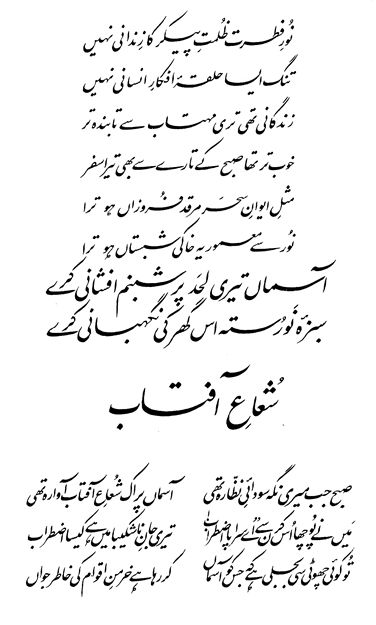 نُورِ فطرت ظُلمتِ پیکر کا زندانی نہیں
تنگ ایسا حلقۂ افکارِ انسانی نہیں
زندگانی تھی تری مہتاب سے تابندہ تر
خوب تر تھا صبح کے تارے سے بھی تیرا سفر
مثلِ ایوانِ سحر مرقد فروزاں ہو ترا
نُور سے معمور یہ خاکی شبستاں ہو ترا
آسماں تیری لحَد پر شبنم افشانی کرے
سبزۂ نَورُستہ اس گھر کی نگہبانی کرے
شُعاعِ آفتاب
صبح جب میری نگہ سودائیِ نظّارہ تھی آسماں پر اک شُعاعِ آفتاب آوارہ تھی
مَیں نے پُوچھا اُس کرن سے ”اے سراپا اضطراب! تیری جانِ ناشکیبا میں ہے کیسا اضطراب
تُو کوئی چھوٹی سی بجلی ہے کہ جس کو آسماں کر رہا ہے خرمنِ اقوام کی خاطر جواں